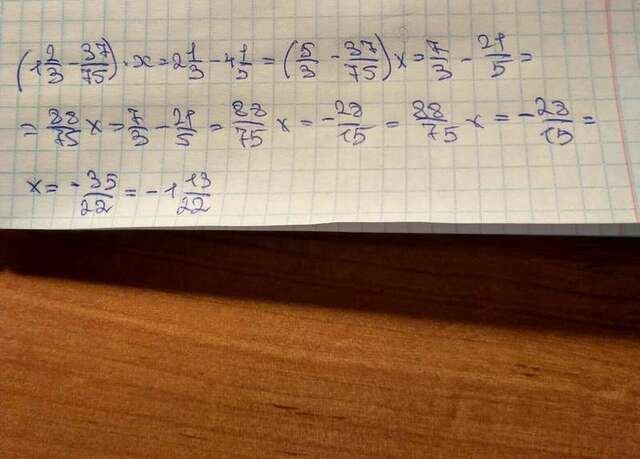 (1 2/3 - 37/75) · x = 2 1/3 - 4 1/5 = (5/3 - 37/75) x = 7/3 - 21/5 =
= 88/75 x = 7/3 - 21/5 = 88/75 x = - 28/15 = 88/75 x = - 28/15 =
x = - 35/22 = - 1 13/22